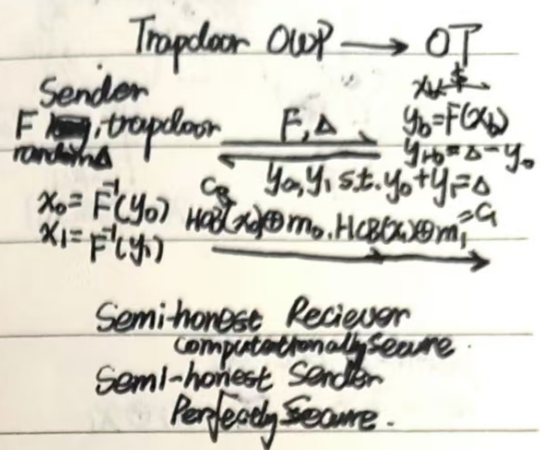 Trapdoor OWP → OT
Sender
F , trapdoor
random Δ
F, Δ
x_b ←$
y_b = F(x_b)
y_{1-b} = Δ - y_b
y_0, y_1 s.t. y_0 + y_1 = Δ
x_0 = F^{-1}(y_0)
x_1 = F^{-1}(y_1)
C_0 = HCB(x_0) ⊕ m_0, HCB(x_1) ⊕ m_1 = C_1
Semi-honest Reciever
computationally secure.
Semi-honest Sender
Perfectly Secure.